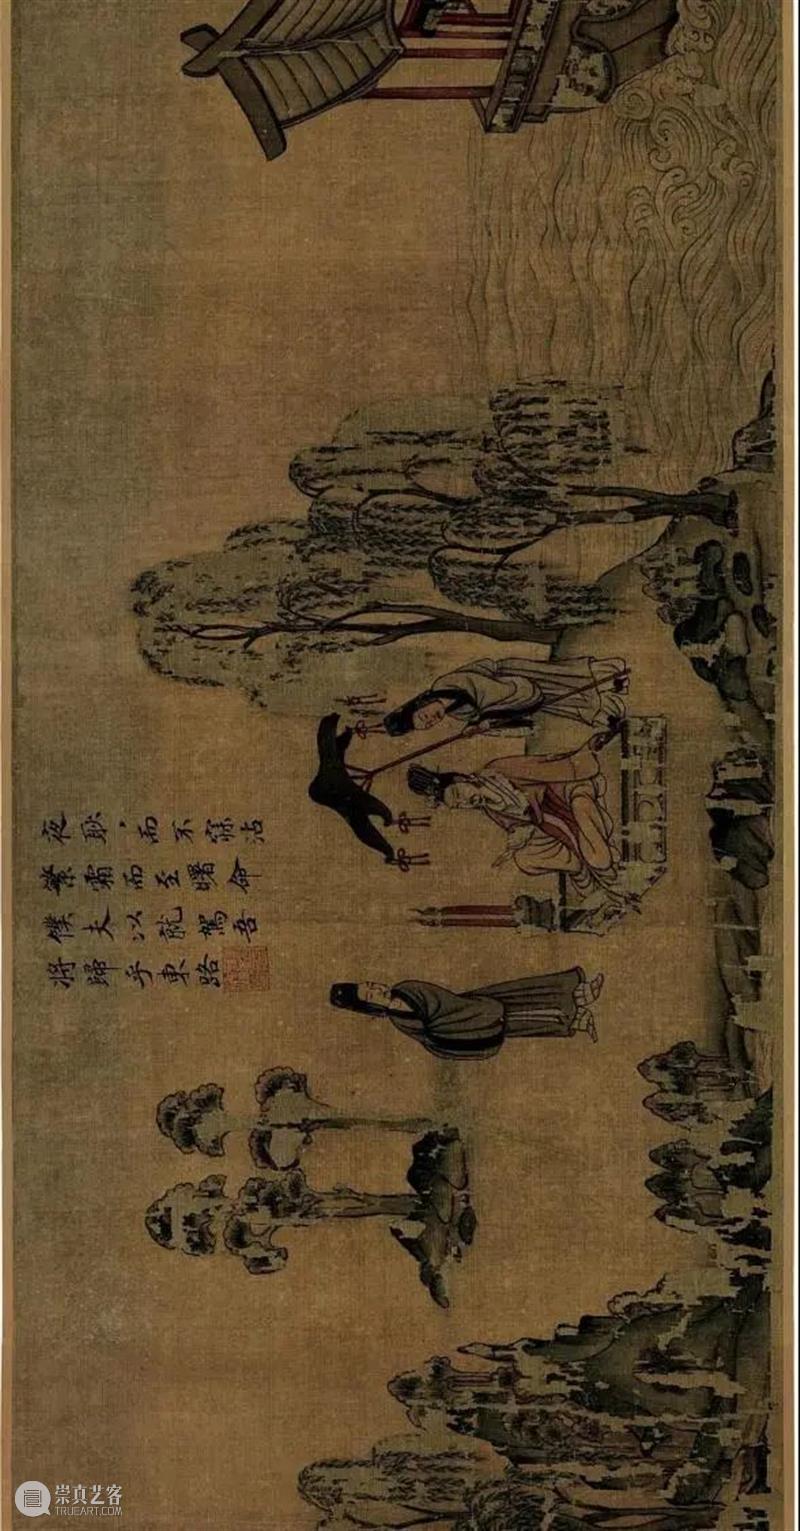 夜耿〻而不寐沾
繁霜而至曙命
僕夫以就駕吾
將歸乎東路
崇真艺客
TRUEART.COM